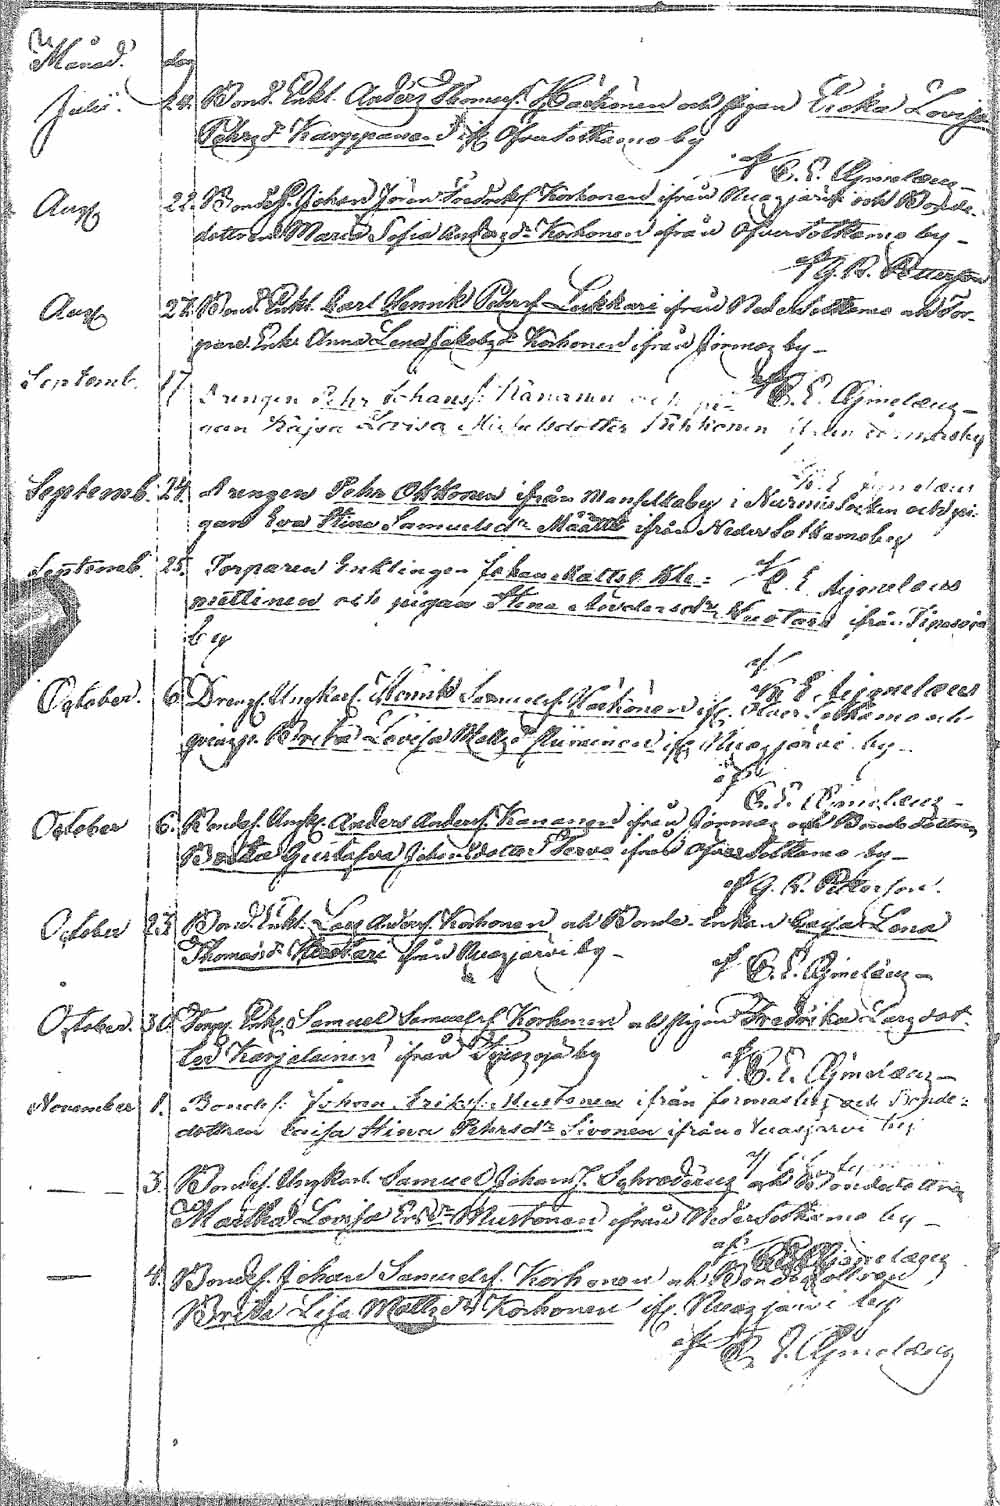 Månad. dag
Julii. 24. Bond. Enkl. Anders Thomess. Härkönen och Pigan Ericka Lovisa
Pehrsd. Karppanen if. Öfversotkamo by
af C. E. Ajmelæus
Aug 22. Bondes. Johan Jöran Fredricks. Korhonen ifrån Nuasjärvi och Bonde-
dottren Maria Sofia Andersdr Korhonen ifrån Öfversotkamo by
af G. R. Petterson
Aug 27. Bond. Enkl. Carl Henrik Pehrs. Lukkari ifrån Nedersotkamo och Tor-
pare Enk. Anna Lena Jakobsdr Korhonen ifrån Jormas by
af C. E. Ajmelæus
Septemb. 17 Drengen Pehr Johans. Kananen och pi-
gan Kajsa Lovisa Michelsdotter Kikkonen ifrån Jormasby
Septemb. 24. Drengen Pehr Okkonen ifrån i Nurmis Socken och pi-
gan Eva Stina Samuelsdr Määttä ifrån Neder Sotkamoby
Septemb. 25. Torparen Enklingen Johan Matts. Kle=
af C. E. Ajmelæus
mettinen och pigan Stina Andersdr Huotari ifrån Tipasoja
by
af C. E. Ajmelæus
October. 6 Dreng. Ungkarl. Henrik Samuels. Härkönen if. Öfver Sotkamo och
pigan Brita Lovisa Mattsd. Piirainen if. Nuasjärvi by
af C. E. Ajmelæus
October 6. Bondes. Ungk. Anders Anders. Kananen ifrån Jormas och Bondedottren
Brita Gustafva Johansdotter Tervo ifrån Öfversotkamo by
af G. R. Petterson.
October 23. Bond. Enkl. Lars Anders. Korhonen och Bonde-Enkan Cajsa Lena
Thomasd. Huotari ifrån Nuasjärvi by
af C. E. Ajmelæus
October. 30. Torp. Enkl. Samuel Samuels. Korhonen och Pigan Fredrika Larsdot-
ter Karjalainen ifrån by
af C. E. Ajmelæus
November 1. Bondes. Johan Eriks. Mustonen ifrån Jormasby och Bonde=
dottren Caisa Stina Pehrsdr Sivonen ifrån Nuasjärvi by
— — 3. Bondes. Ungkarl. Samuel Johans. Schroderus och Bondedottren
Martha Lovisa Ersdr Mustonen ifrån Nedersotkamo by
af C. E. Ajmelæus
— 4. Bondes. Johan Samuels. Korhonen och Bondedottren
Brita Lisa Mattsdr Korhonen if. Nuasjärvi by
af C. E. Ajmelæus